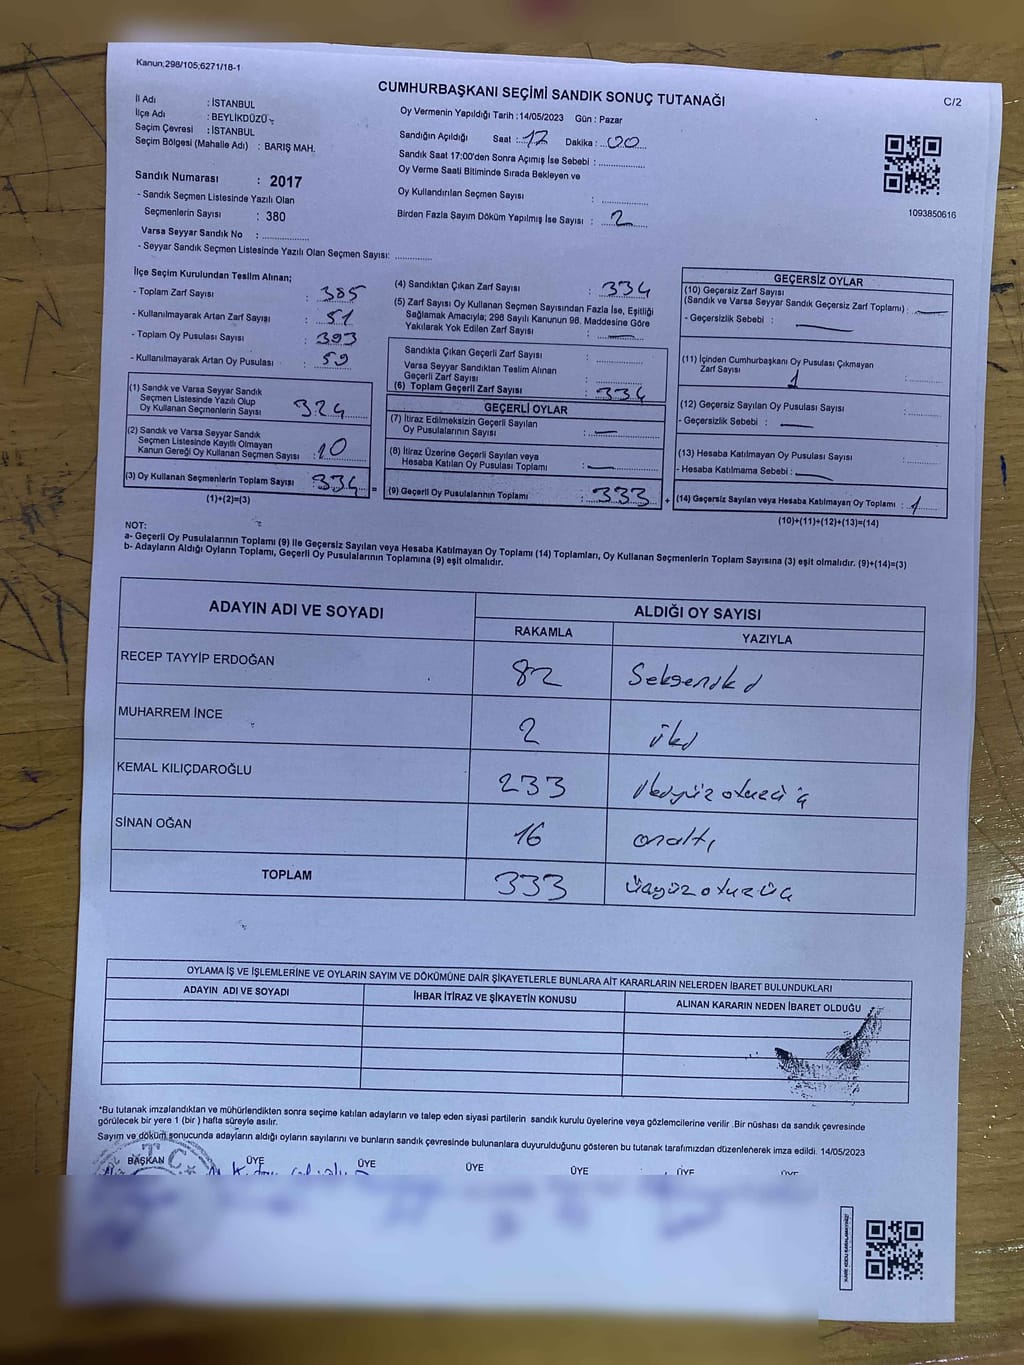 Kanun;298/105;6271/18-1
CUMHURBAŞKANI SEÇİMİ SANDIK SONUÇ TUTANAĞI
C/2
İl Adı : İSTANBUL
İlçe Adı : BEYLİKDÜZÜ
Seçim Çevresi : İSTANBUL
Seçim Bölgesi (Mahalle Adı) : BARIŞ MAH.
Sandık Numarası : 2017
- Sandık Seçmen Listesinde Yazılı Olan
Seçmenlerin Sayısı : 380
Varsa Seyyar Sandık No :
- Seyyar Sandık Seçmen Listesinde Yazılı Olan Seçmen Sayısı:
Oy Vermenin Yapıldığı Tarih :14/05/2023 Gün : Pazar
Sandığın Açıldığı Saat : 17 Dakika : 00
Sandık Saat 17:00'den Sonra Açımış İse Sebebi :
Oy Verme Saati Bitiminde Sırada Bekleyen ve
Oy Kullandırılan Seçmen Sayısı :
Birden Fazla Sayım Döküm Yapılmış İse Sayısı : 2
1093850616
İlçe Seçim Kurulundan Teslim Alınan;
- Toplam Zarf Sayısı : 385
- Kullanılmayarak Artan Zarf Sayısı : 51
- Toplam Oy Pusulası Sayısı : 393
- Kullanılmayarak Artan Oy Pusulası : 59
(1) Sandık ve Varsa Seyyar Sandık
Seçmen Listesinde Yazılı Olup
Oy Kullanan Seçmenlerin Sayısı 324
(2) Sandık ve Varsa Seyyar Sandık
Seçmen Listesinde Kayıtlı Olmayan
Kanun Gereği Oy Kullanan Seçmen Sayısı : 10
(3) Oy Kullanan Seçmenlerin Toplam Sayısı : 334 =
(1)+(2)=(3)
(4) Sandıktan Çıkan Zarf Sayısı : 334
(5) Zarf Sayısı Oy Kullanan Seçmen Sayısından Fazla İse, Eşitliği
Sağlamak Amacıyla; 298 Sayılı Kanunun 98. Maddesine Göre
Yakılarak Yok Edilen Zarf Sayısı : —
Sandıkta Çıkan Geçerli Zarf Sayısı :
Varsa Seyyar Sandıktan Teslim Alınan
Geçerli Zarf Sayısı :
(6) Toplam Geçerli Zarf Sayısı : 334
GEÇERLİ OYLAR
(7) İtiraz Edilmeksizin Geçerli Sayılan
Oy Pusulalarının Sayısı : —
(8) İtiraz Üzerine Geçerli Sayılan veya
Hesaba Katılan Oy Pusulası Toplamı : —
(9) Geçerli Oy Pusulalarının Toplamı : 333 +
GEÇERSİZ OYLAR
(10) Geçersiz Zarf Sayısı
(Sandık ve Varsa Seyyar Sandık Geçersiz Zarf Toplamı) : —
- Geçersizlik Sebebi : —
(11) İçinden Cumhurbaşkanı Oy Pusulası Çıkmayan
Zarf Sayısı : 1
(12) Geçersiz Sayılan Oy Pusulası Sayısı :
- Geçersizlik Sebebi : —
(13) Hesaba Katılmayan Oy Pusulası Sayısı
- Hesaba Katılmama Sebebi : —
(14) Geçersiz Sayılan veya Hesaba Katılmayan Oy Toplamı : 1
(10)+(11)+(12)+(13)=(14)
NOT:
a- Geçerli Oy Pusulalarının Toplamı (9) ile Geçersiz Sayılan veya Hesaba Katılmayan Oy Toplamı (14) Toplamları, Oy Kullanan Seçmenlerin Toplam Sayısına (3) eşit olmalıdır. (9)+(14)=(3)
b- Adayların Aldığı Oyların Toplamı, Geçerli Oy Pusulalarının Toplamına (9) eşit olmalıdır.
ADAYIN ADI VE SOYADI
ALDIĞI OY SAYISI
RAKAMLA YAZIYLA
RECEP TAYYİP ERDOĞAN 82 Sekseniki
MUHARREM İNCE 2 iki
KEMAL KILIÇDAROĞLU 233 ikiyüz otuzüç
SİNAN OĞAN 16 onaltı
TOPLAM 333 üçyüzotuzüç
OYLAMA İŞ VE İŞLEMLERİNE VE OYLARIN SAYIM VE DÖKÜMÜNE DAİR ŞİKAYETLERLE BUNLARA AİT KARARLARIN NELERDEN İBARET BULUNDUKLARI
ADAYIN ADI VE SOYADI İHBAR İTİRAZ VE ŞİKAYETİN KONUSU ALINAN KARARIN NEDEN İBARET OLDUĞU
*Bu tutanak imzalandıktan ve mühürlendikten sonra seçime katılan adayların ve talep eden siyasi partilerin sandık kurulu üyelerine veya gözlemcilerine verilir .Bir nüshası da sandık çevresinde
görülecek bir yere 1 (bir ) hafta süreyle asılır.
Sayım ve döküm sonucunda adayların aldığı oyların sayılarını ve bunların sandık çevresinde bulunanlara duyurulduğunu gösteren bu tutanak tarafımızdan düzenlenerek imza edildi. 14/05/2023
BAŞKAN ÜYE ÜYE ÜYE ÜYE ÜYE ÜYE
T.C.